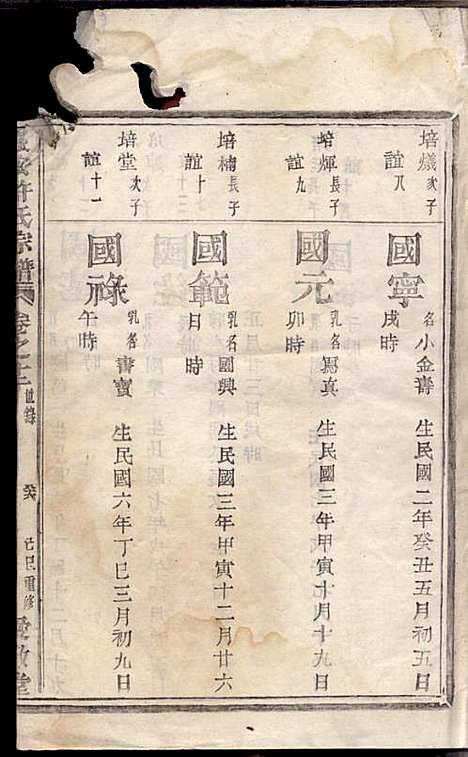 培爔次子
誼八
國寧
名小金壽 生民國二年癸丑五月初五日
戌時
培煇長子
誼九
國元
乳名寫真 生民國三年甲寅十月十九日
卯時
培楠長子
誼十
國範
乳名國興 生民國三年甲寅十二月廿六
日 時
培堂次子
誼十一
國祿
乳名書寶 生民國六年丁巳三月初九日
午時
許氏宗譜 卷之 世錄
己巳重修 敦堂